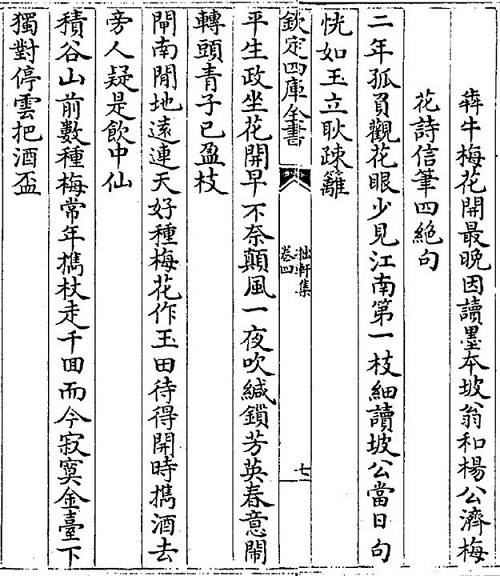 犇牛梅花開最晚因讀墨本坡翁和楊公濟梅
花詩信筆四絶句
二年孤負觀花眼少見江南第一枝細讀坡公當日句
恍如玉立耿疎籬
欽定四庫全書
拙軒集
卷四
七
平生政坐花開早不奈顛風一夜吹緘鎖芳英春意鬧
轉頭青子已盈枝
閘南閒地遠連天好種梅花作玉田待得開時擕酒去
旁人疑是飲中仙
積谷山前數種梅常年擕杖走千回而今寂寞金臺下
獨對停雲把酒盃